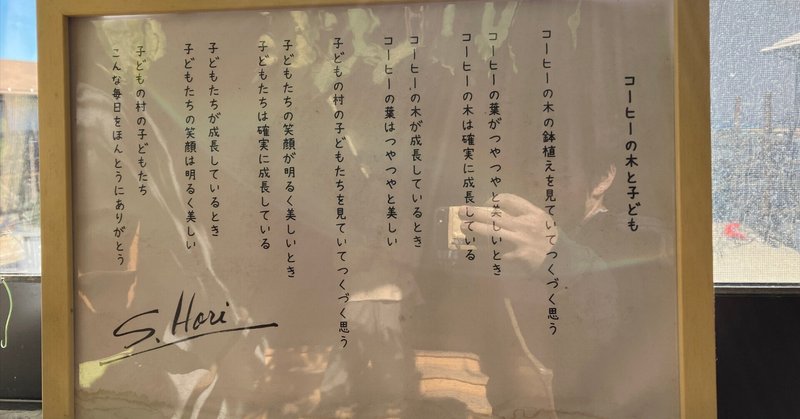 コーヒーの木と子ども
コーヒーの木の鉢植えを見ていてつくづく思う
コーヒーの葉がつやつやと美しいとき
コーヒーの木は確実に成長している
コーヒーの木が成長しているとき
コーヒーの葉はつやつやと美しい
子どもの村の子どもたちを見ていてつくづく思う
子どもたちの笑顔が明るく美しいとき
子どもたちは確実に成長している
子どもたちが成長しているとき
子どもたちの笑顔は明るく美しい
子どもの村の子どもたち
こんな毎日をほんとうにありがとう
S. Hori